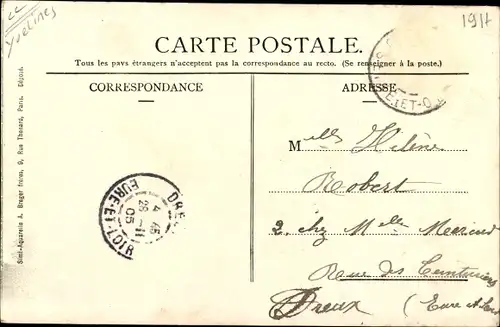 Yvelines
1917
CARTE POSTALE.
Tous les pays étrangers n'acceptent pas la correspondance au recto. (Se renseigner à la poste.)
CORRESPONDANCE
ADRESSE
Simili-Aquarelle A. Breger frères, 9, Rue Thénard, Paris. Déposé.
ET-O
Melle Hélène
Robert
2, chez Melle
Rue des
Dreux (Eure et Loir
DRE
4 45
28 - 11
05
EURE-ET-LOIR